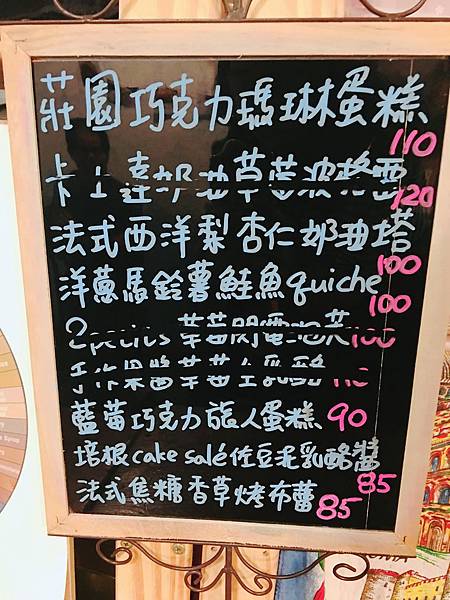 莊園巧克力瑪琳蛋糕
110
卡士達奶油草莓波格雪
120
法式西洋梨杏仁奶油塔
100
洋蔥馬鈴薯鮭魚quiche
100
草莓閃電泡芙100
手作
藍莓巧克力旅人蛋糕 90
培根cake salé佐豆毛乳酪醬
85
法式焦糖香草烤布蕾 85